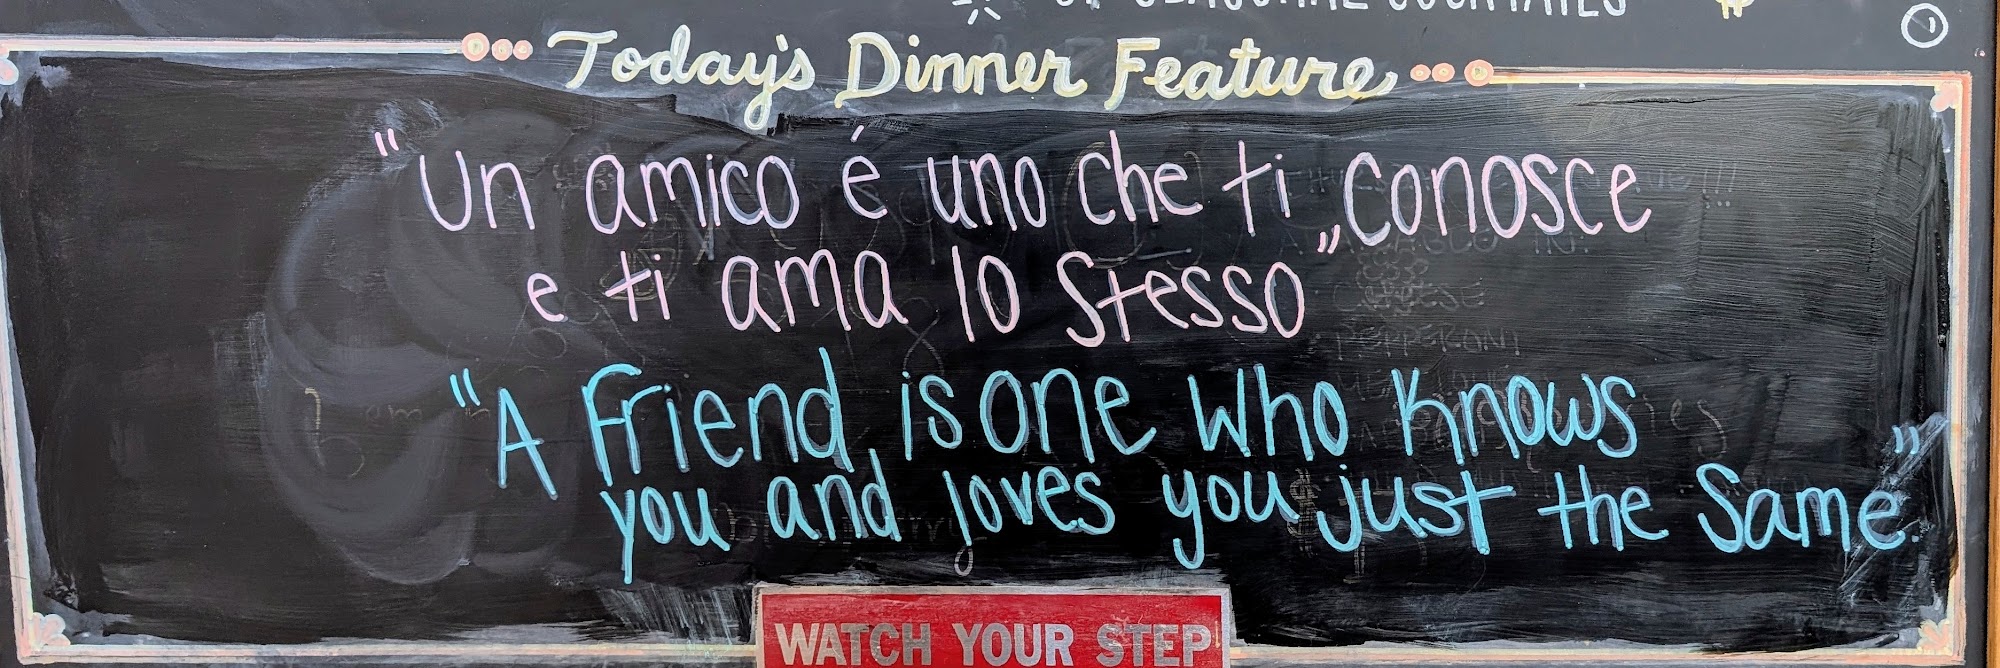 OF SEASONAL COCKTAILS
Today's Dinner Feature
"Un amico é uno che ti conosce
e ti ama lo stesso"
"A friend is one who knows
you and loves you just the same."
WATCH YOUR STEP